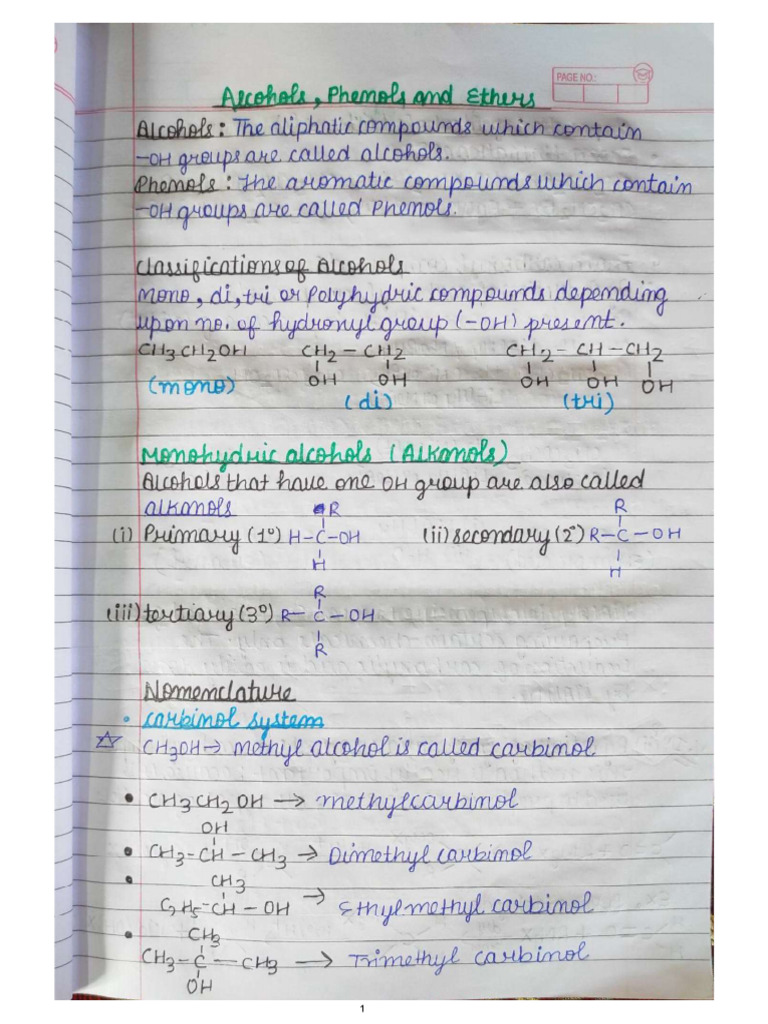 PAGE NO.:
Alcohols, Phenols and Ethers
Alcohols: The aliphatic compounds which contain
-OH groups are called alcohols.
Phenols: The aromatic compounds which contain
-OH groups are called Phenols.
Classifications of Alcohols
Mono, di, tri or Polyhydric compounds depending
upon no. of hydronyl group (-OH) present.
CH3CH2OH CH2 – CH2 CH2 – CH – CH2
OH OH OH OH OH
(mono) (di) (tri)
Monohydric alcohols (Alkanols)
Alcohols that have one OH group are also called
alkanols
R R
(i) Primary (1°) H–C–OH (ii) secondary (2°) R–C–OH
H H
R
(iii) tertiary (3°) R–C–OH
R
Nomenclature
• Carbinol system
☆ CH3OH → methyl alcohol is called carbinol
• CH3CH2OH → methylcarbinol
OH
• CH3–CH–CH3 → Dimethyl carbinol
• CH3
C2H5–CH–OH → Ethylmethyl carbinol
• CH3
CH3–C–CH3 → Trimethyl carbinol
OH
1